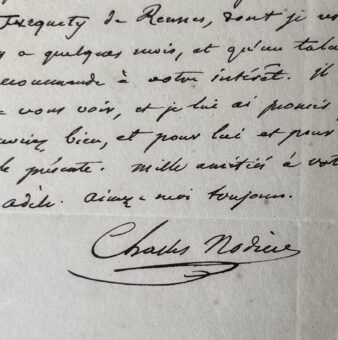 Turquety de Rennes, dont je vo
y a quelques mois, et qu'un tale
recommande à votre intérêt. il
vous voir, et je lui ai promis
bien, et pour lui et pour
le présente. mille amitiés à vot
adèle. aimez-moi toujours.
Charles Nodier